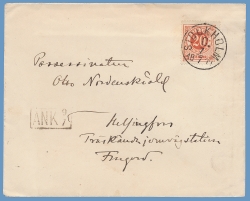 STOCKHOLM
20
Possessionatus
Otto Nordenskiöld
ANK
Helsingfors
Träskända jernvägsstation